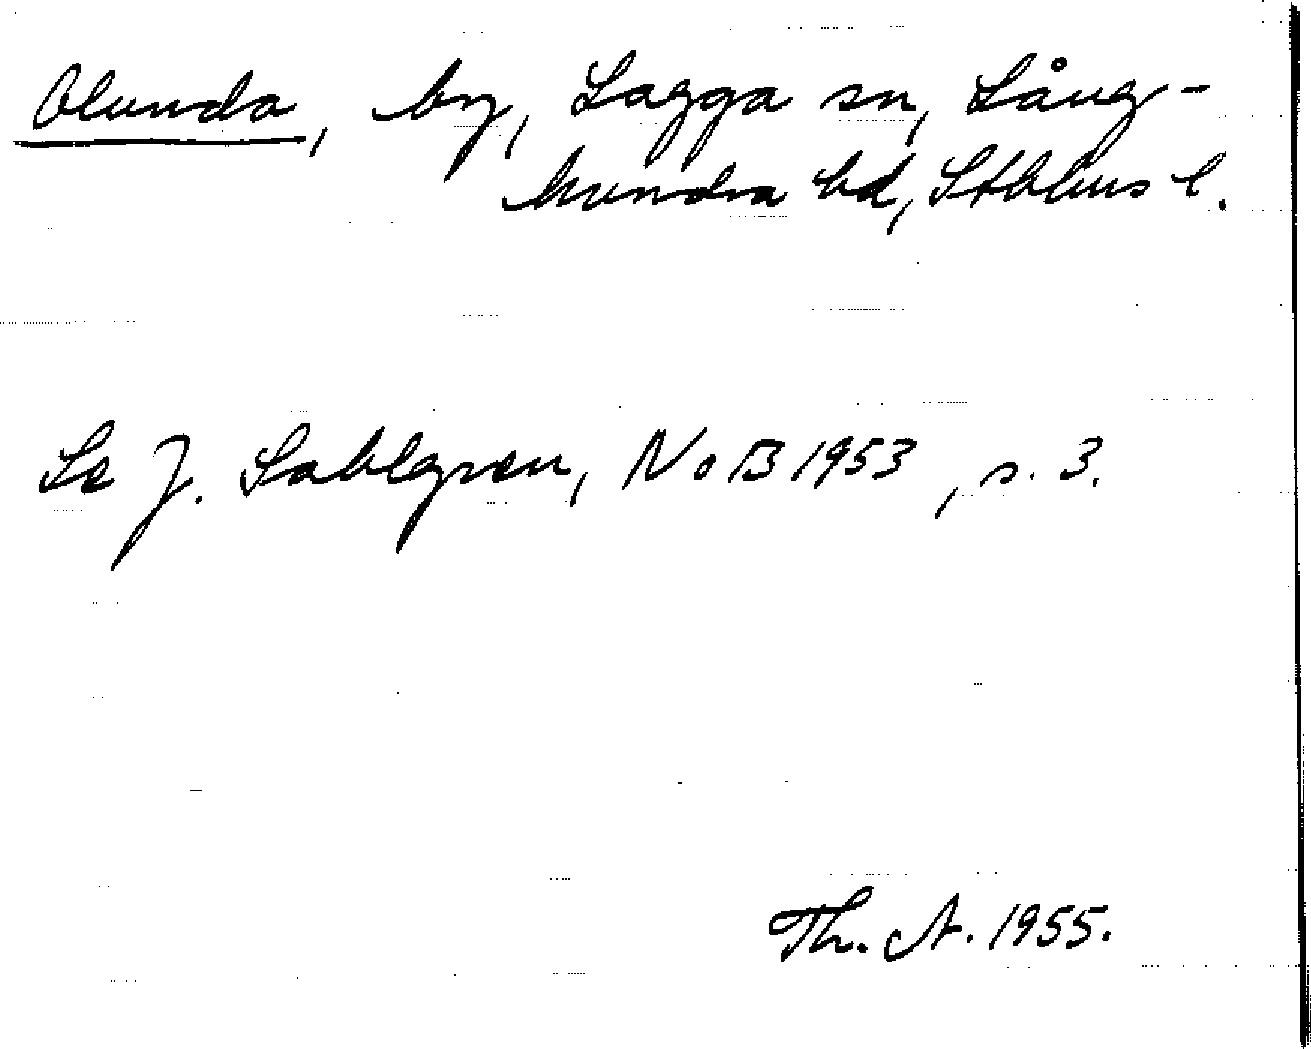 Olunda, by, Lagga sn, Lång-
hundra hd, Sthlms l.
Se J. Sahlgren, NoB 1953, s. 3.
Th. A. 1955.